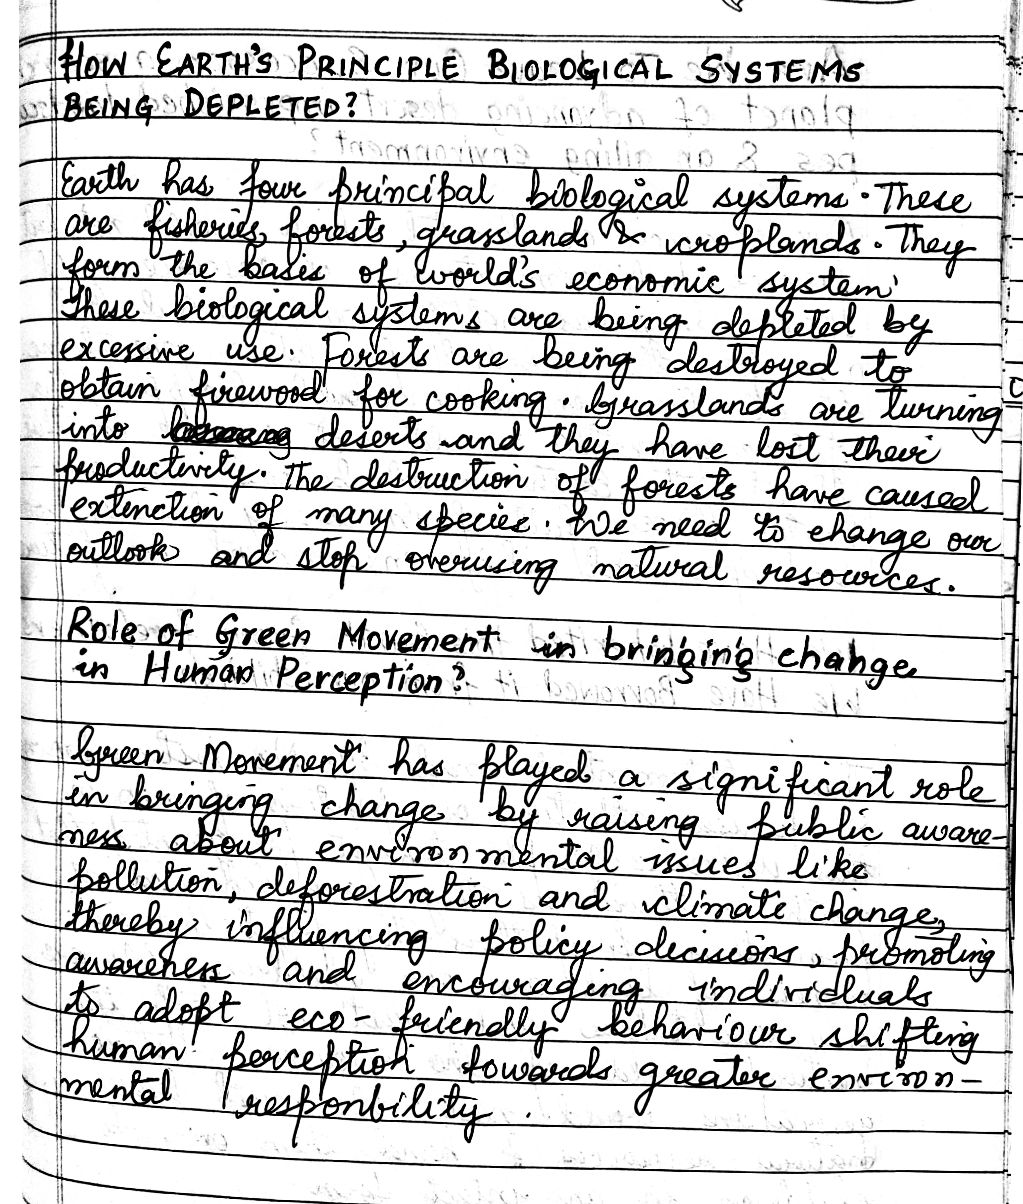 HOW EARTH'S PRINCIPLE BIOLOGICAL SYSTEMS
BEING DEPLETED?
Earth has four principal biological systems. These
are fisheries, forests, grasslands & croplands. They
form the basis of world's economic system.
These biological systems are being depleted by
excessive use. Forests are being destroyed to
obtain firewood for cooking. Grasslands are turning
into deserts and they have lost their
productivity. The destruction of forests have caused
extenction of many species. We need to change our
outlook and stop overusing natural resources.
Role of Green Movement in bringing change
in Human Perception?
Green Movement has played a significant role
in bringing change by raising public aware-
ness about environmental issues like
pollution, deforestration and climate change,
thereby influencing policy decisions, promoting
awareness and encouraging individuals
to adopt eco-friendly behaviour shifting
human perception towards greater environ-
mental responbility.